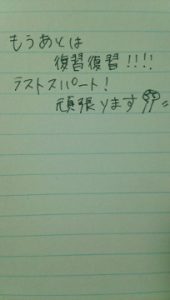 もうあとは
復習復習!!!!
ラストスパート!
頑張ります